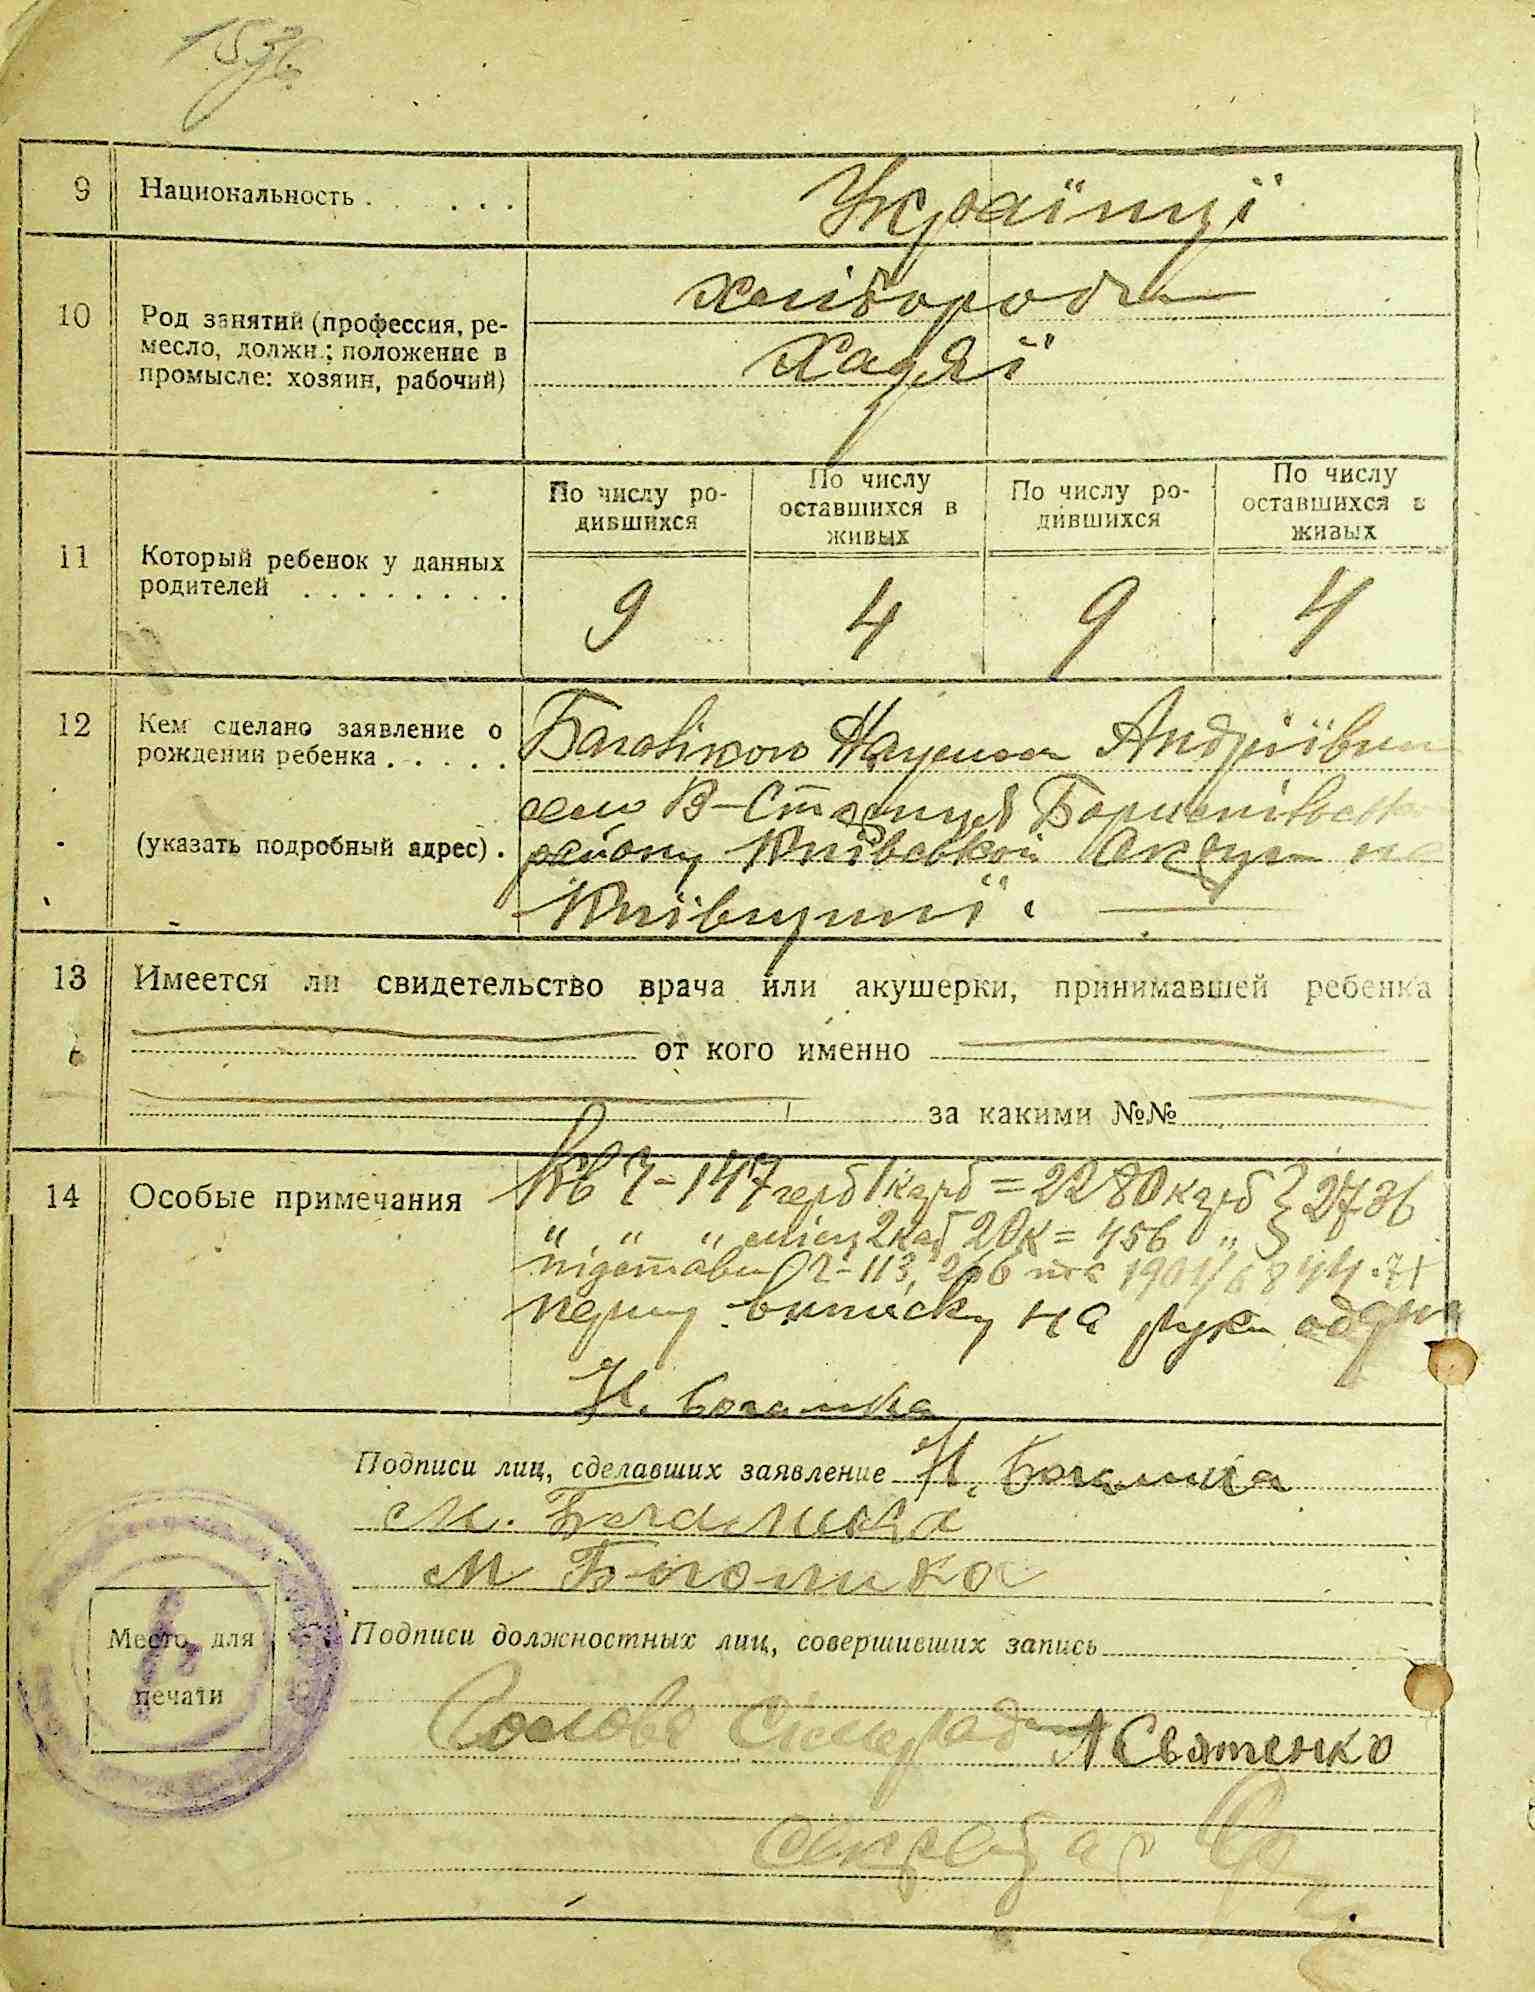 9 Национальность . . . . . Українці
10 Род занятий (профессия, ре-
месло, должн.; положение в
промысле: хозяин, рабочий)
хлібороб
Хазяї
11 Который ребенок у данных
родителей . . . . . . . .
По числу ро-
дившихся
По числу
оставшихся в
живых
По числу ро-
дившихся
По числу
оставшихся в
живых
9 4 9 4
12 Кем сделано заявление о
рождении ребенка . . . . .
(указать подробный адрес) .
Андріївни
село В-Стариця Бориспівськ
району Київської Округи на
Київщині.
13 Имеется ли свидетельство врача или акушерки, принимавшей ребенка
от кого именно
за какими №№
14 Особые примечания
Кв Ч-147 герб 1 карб = 2280 карб } 2736
" " " місц 20к = 456 "
підставі
першу виписку на руки
Н. Богомика
Подписи лиц, сделавших заявление Н. Богомика
М. Багамика
М Богомика
Место для
печати
Подписи должностных лиц, совершивших запись
Голова Сільради Святенко
секретар